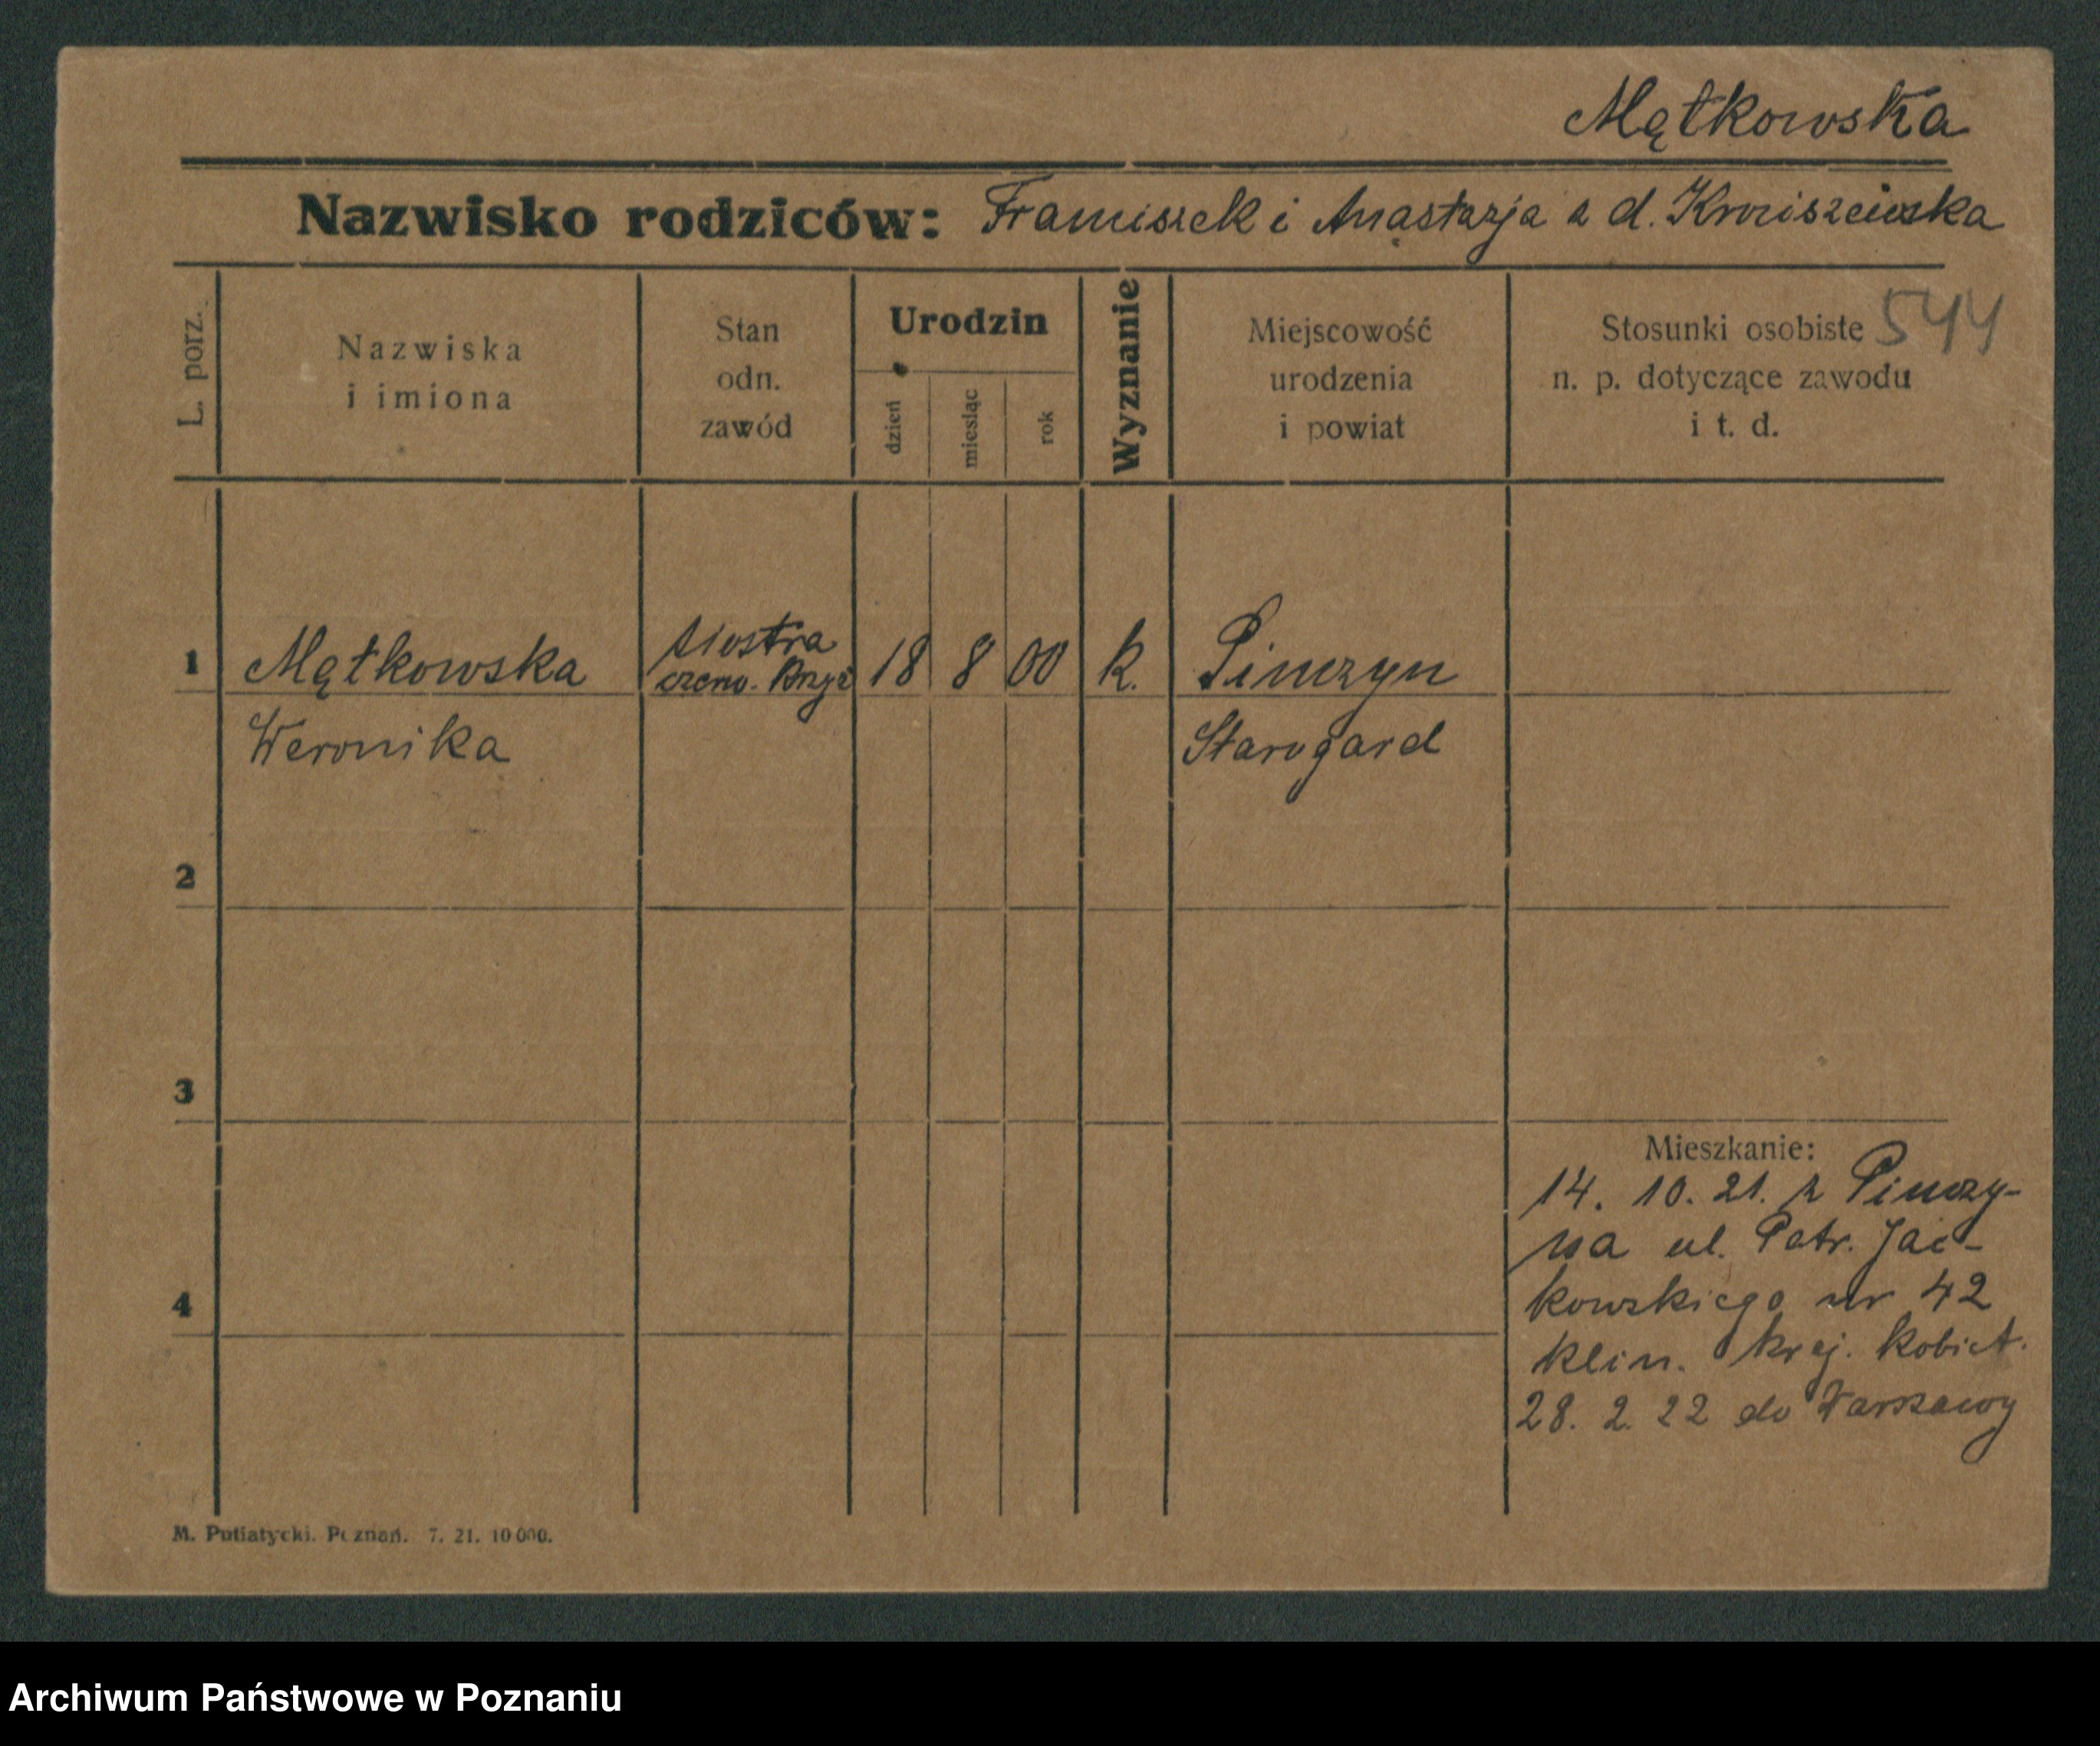 Mątkowska
Nazwisko rodziców: Franciszek i Anastazja z d.
544
L. porz.
Nazwiska i imiona
Stan odn. zawód
Urodzin
dzień
miesiąc
rok
Wyznanie
Miejscowość urodzenia i powiat
Stosunki osobiste n. p. dotyczące zawodu i t. d.
1 Mątkowska siostra czerw. Krzyż 18 8 00 k. Pinczyn
Weronika Starogard
2
3
4
Mieszkanie:
14. 10. 21. z Pinczy-
na ul. Patr. Jac-
kowskiego nr 42
klin. kraj. kobiet.
28. 2. 22 do Warszawy
M. Putiatycki. Poznań. 7. 21. 10 000.
Archiwum Państwowe w Poznaniu